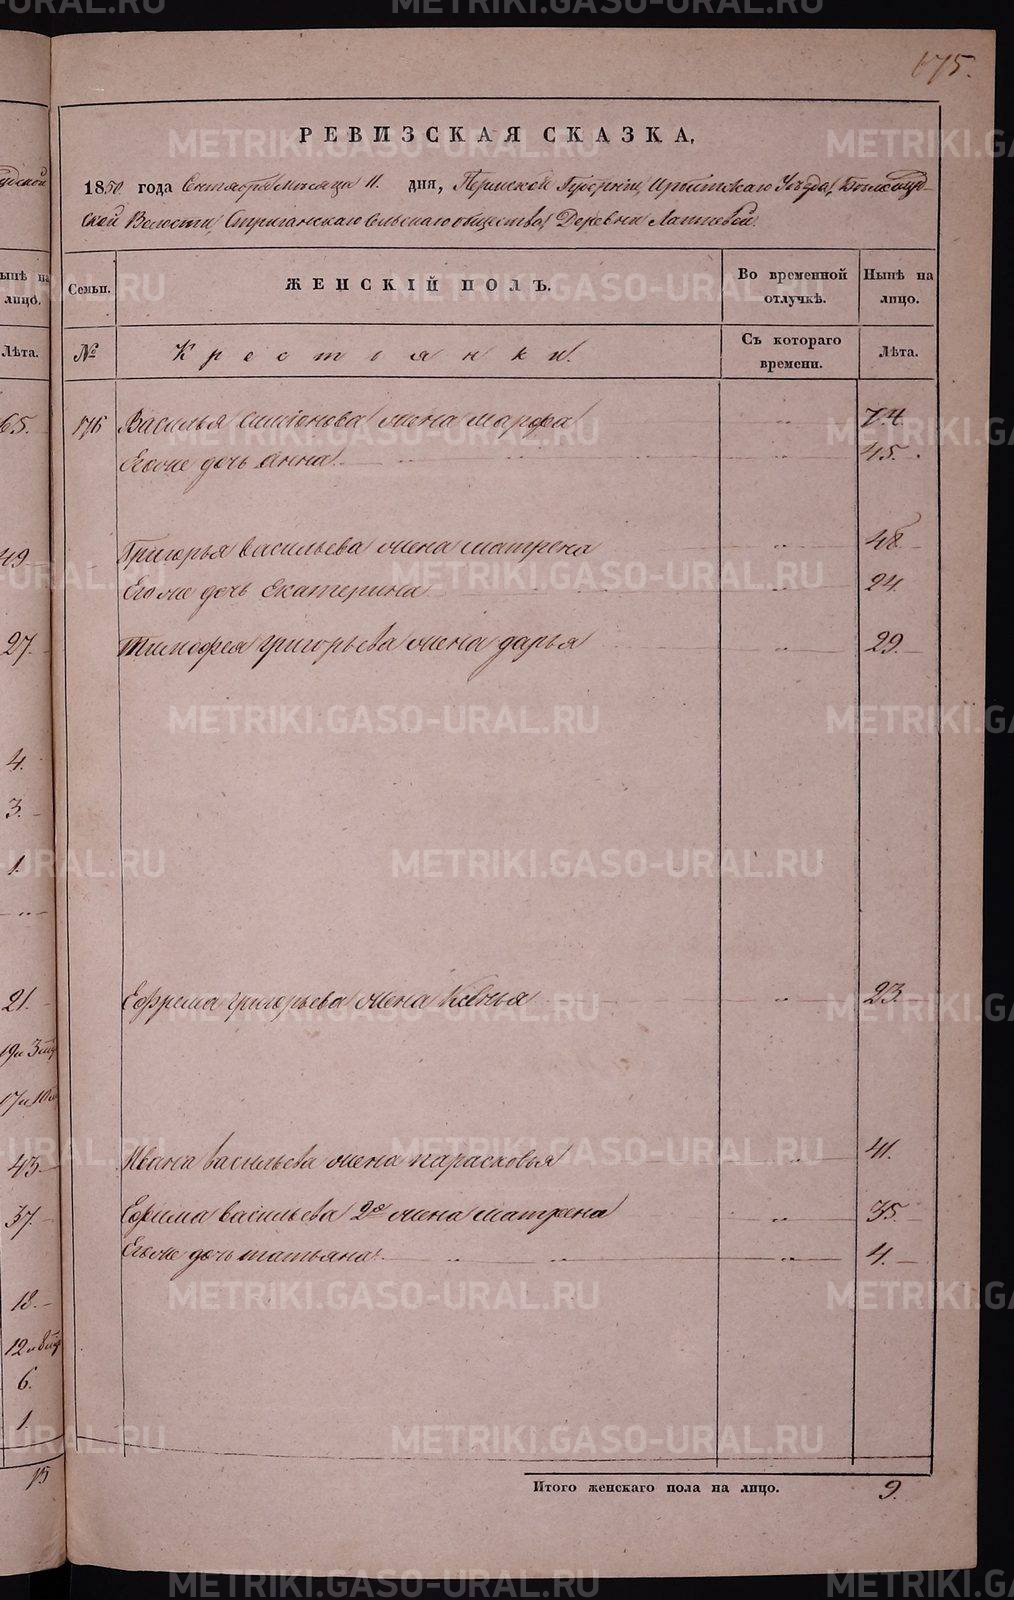 175.
РЕВИЗСКАЯ СКАЗКА,
1850 года Сентября Месяца 11. дня, Пермской Губерніи, Ирбитскаго Уѣзда, Бѣлослуд-
ской Волости, Стриганскаго сельскаго общества, Деревни Лаптевой.
Семьи. ЖЕНСКІЙ ПОЛЪ. Во временной отлучкѣ. Нынѣ на лицо.
№ Крестьянки. Съ котораго времени. Лѣта.
176 Василья Симіонова жена Марфа " 74.
Его же дочь Анна " 45.
Григорья Васильева жена Матрена " 48
Его же дочь Екатерина " 24.
Тимофея Григорьева жена Дарья " 29.
Ефрема Григорьева жена Ксенья " 23.
Ивана Васильева жена Парасковья " 41.
Ефима Васильева 2я жена Матрена " 35.
Его же дочь Татьяна " 4.
Итого женскаго пола на лицо. 9.
нынѣ на
лицѣ.
Лѣта.
65.
49
27.
4.
3.
1.
21.
43.
37.
18.
6.
1.
15
METRIKI.GASO-URAL.RU